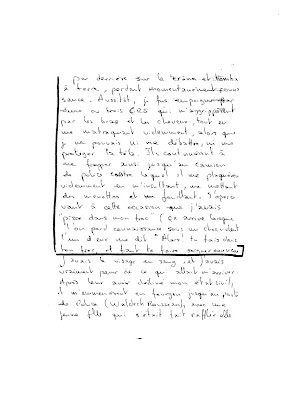 par derrière sur le crâne et tombai
à terre, perdant momentanément connais
sance. Aussitôt, je fus empoigné par
deux ou trois CRS qui m'agrippèrent
par les bras et les cheveux, tout en
me matraquant violemment, alors que
je ne pouvais ni me débattre, ni me
protéger la tête. Ils continuèrent à
me frapper ainsi jusqu'au camion
de police contre lequel il me plaquèrent
violemment en m'insultant, me mettant
des menottes et me fouillant. J'aperçu
vant à cette occasion que j'avais
"pissé dans mon froc" (ça arrive lorsque
l'on perd connaissance sous un choc violent)
l'un d'eux me dit "Alors tu fais dans
ton froc, et
j'avais le visage en sang et j'avais
vraiment peur de ce qui allait m'arriver.
Après leur avoir décliné mon état civil,
il m'emmenèrent en fourgon jusqu'au poste
de Police (Waldeck Rousseau), avec une
jeune fille qui s'était fait rafler elle